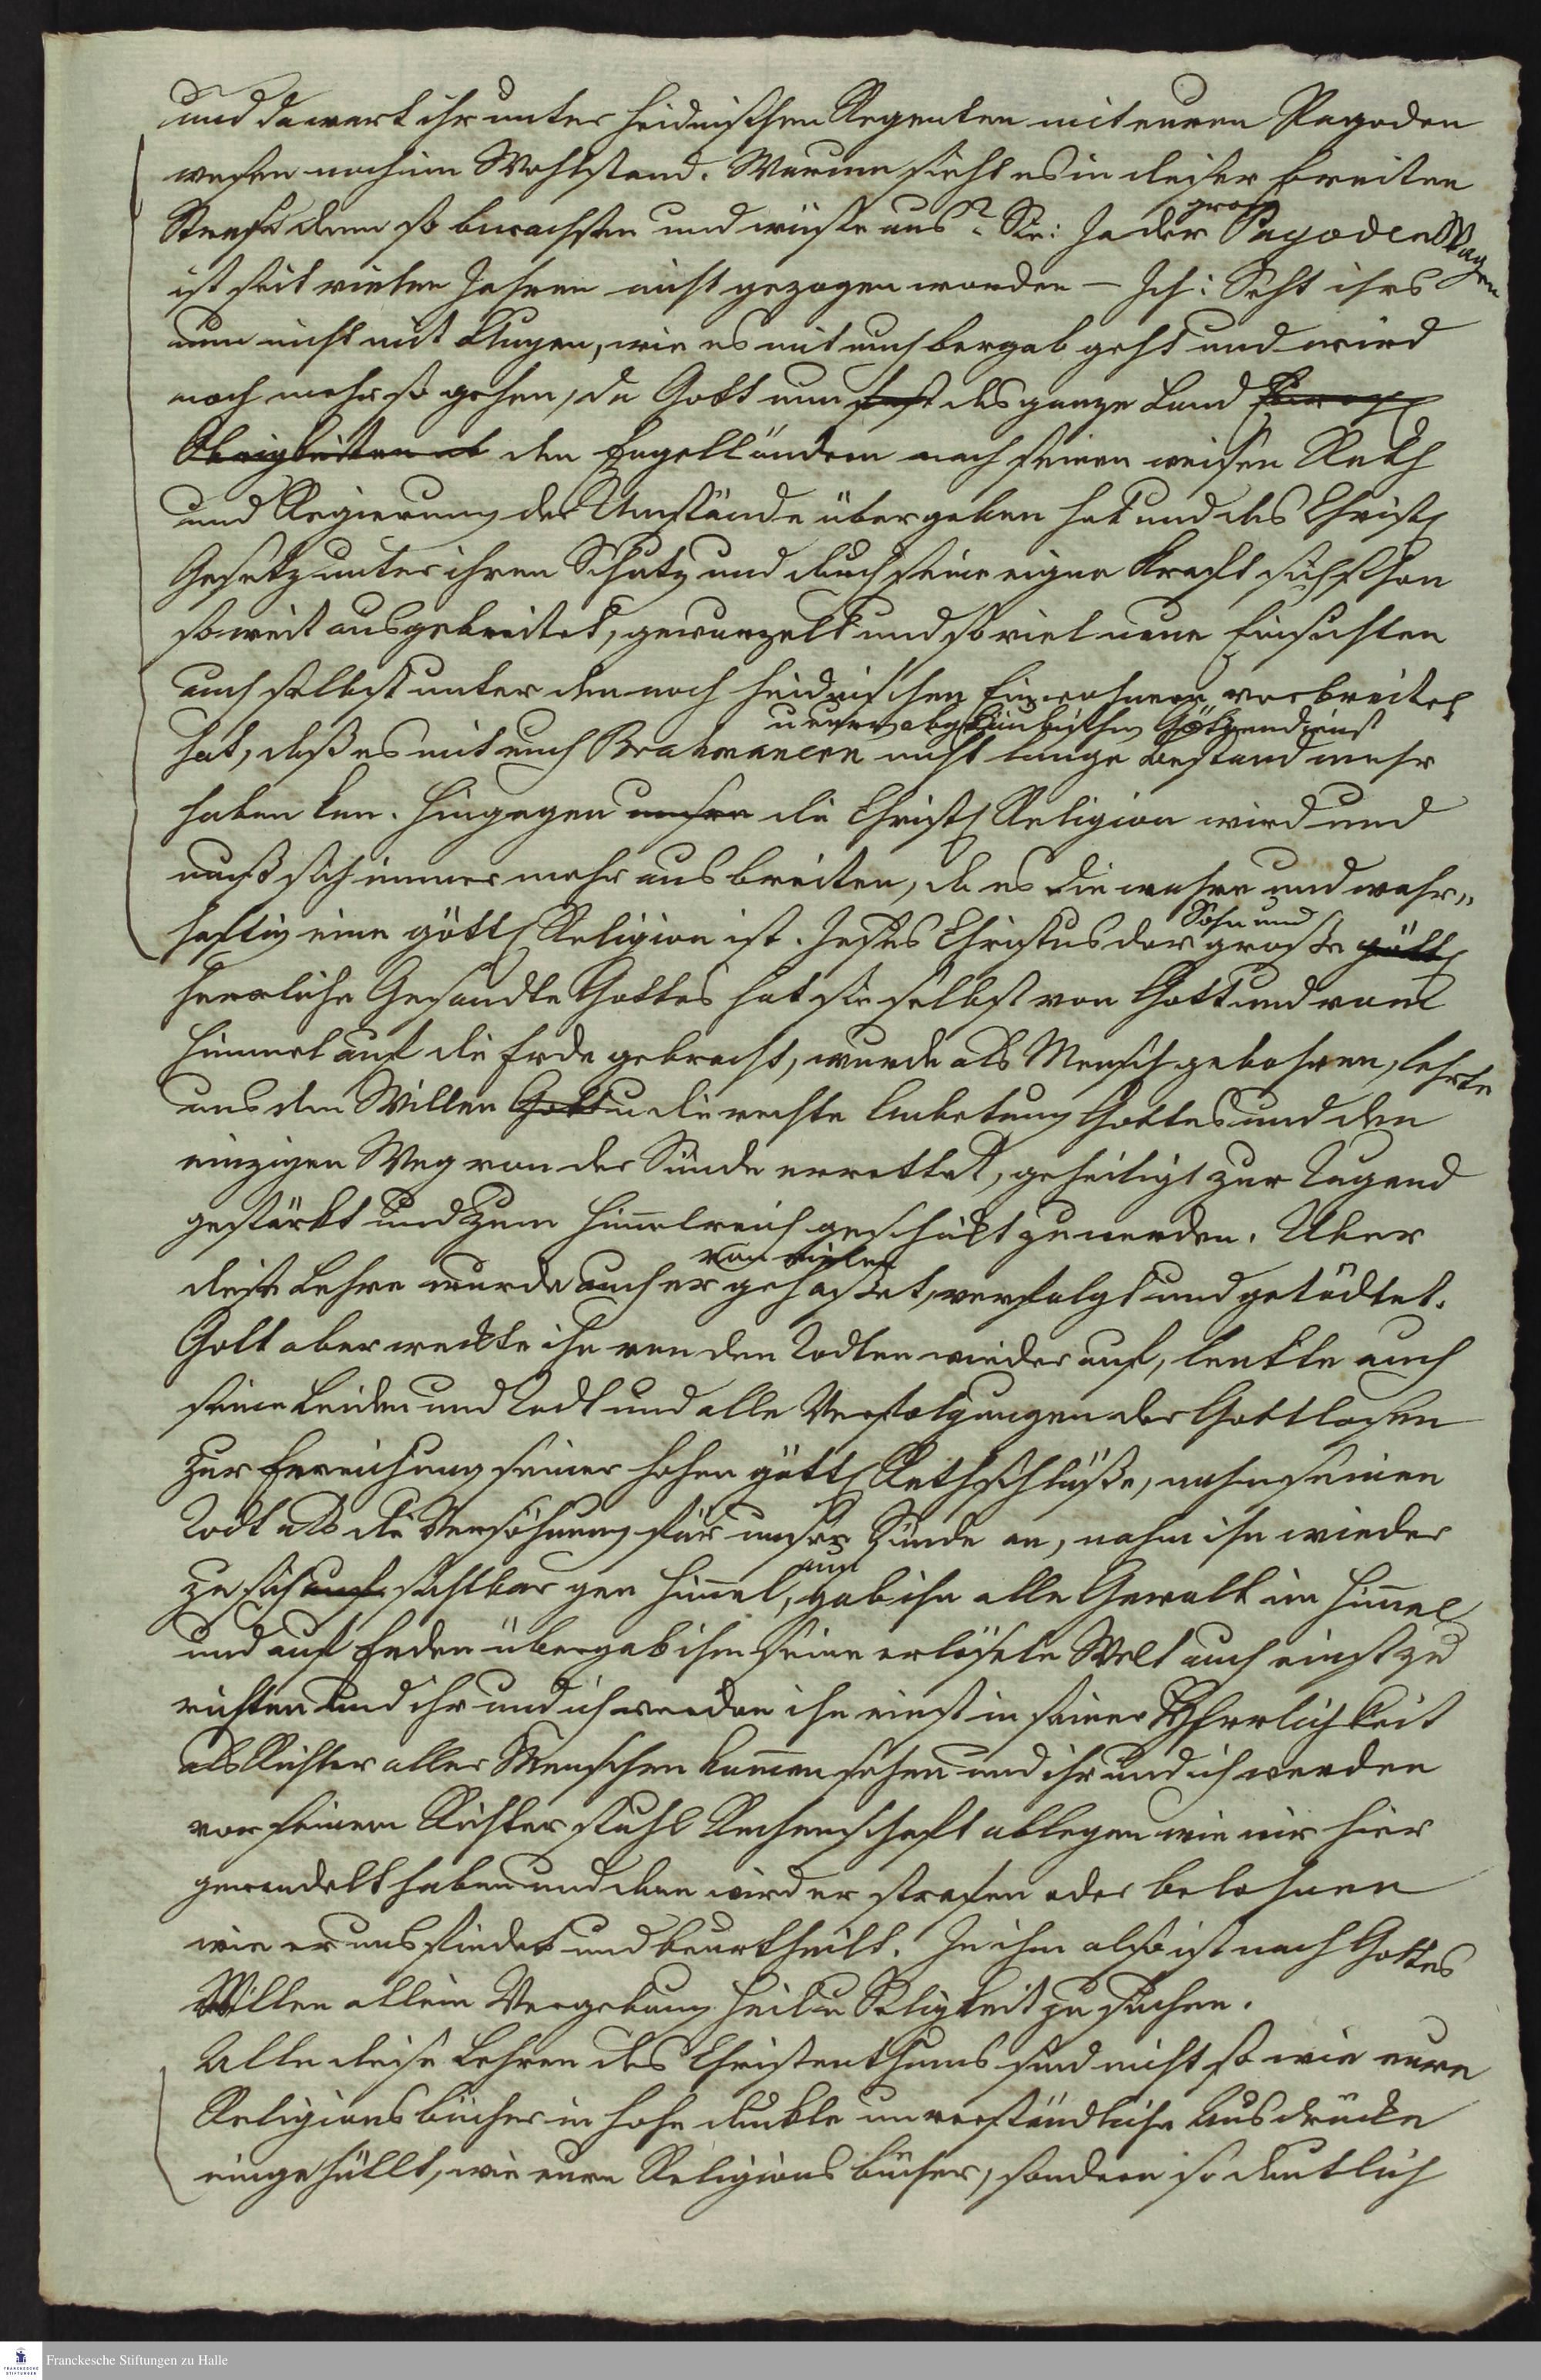 und da wart ihr unter heidnischen Regenten mit euren Pagoden
wesen noch im Wohlstand. Warum sieht es in dieser breiten
Straße denn so bewachsen und wüste aus? Sie: Ja der große Pagoden Wagen
ist seit vielen Jahren nicht gezogen worden – Ich: Seht ihrs
nun nicht mit Augen, wie es mit euch bergab geht und wird
noch mehr so gehen, da Gott nun fast das ganze Land
Obrigkeiten den Engelländern nach seinem weisen Rath
und Regierung der Umstände übergeben hat und das Christl
Gesetz unter ihrem Schutz und durch seine eigne Kraft sich schon
so weit ausgebreitet, gewurzelt und so viel neue Einsichten
auch selbst unter den noch heidnischen Einwohnern verbreitet
u eurem abgöttischen Götzendienst
hat, daß es mit euch Brahmanern nicht lange Bestand mehr
haben kan. Hingegen unsere die Christl Religion wird und
muß sich immer mehr ausbreiten, da es die wahre und wahr„
haftig eine göttl Religion ist. Jesus Christus der große Sohn und göttl
herrliche Gesandte Gottes hat sie selbst von Gott und vom
Himmel auf die Erde gebracht, wurde als Mensch gebohren, lehrte
uns den Willen Gott u die rechte Anbetung Gottes und den
einzigen Weg von der Sünde errettet, geheiligt zur Tugend
gestärkt und zum Himelreich geschikt zu werden. Über
diese Lehre wurde auch er von vielen gehaßet, verfolgt und getödtet.
Gott aber wekte ihn von den Todten wieder auf, lenkte auch
seine Leiden und Todt und alle Verfolgungen der Gottlosen
zur Erreichung seiner hohen göttl Rathschlüße, nahm seinen
Todt als die Versöhnung für unsre Sünde an, nahm ihn wieder
zu sich auf sichtbar gen Himel, auf gab ihm alle Gewalt im Himel
und auf Erden übergab ihm seine erlösete Welt auch einst zu
richten und ihr und ich werden ihn einst in seiner Herrlichkeit
als Richter aller Menschen komen sehen und ihr und ich werden
vor seinem Richterstuhl Rechenschaft ablegen wie wir hier
gewandelt haben und dann wird er strafen oder belohnen
wie er uns findet und beurtheilt. In ihm also ist nach Gottes
Willen allein Vergebung Heil u Seligkeit zu suchen.
Alle diese Lehren des Christenthums sind nicht so wie eure
Religionsbücher in hohe dunkle unverständliche Ausdrücke
eingehüllt, wie eure Religions bücher, sondern so deutlich
Franckesche Stiftungen zu Halle